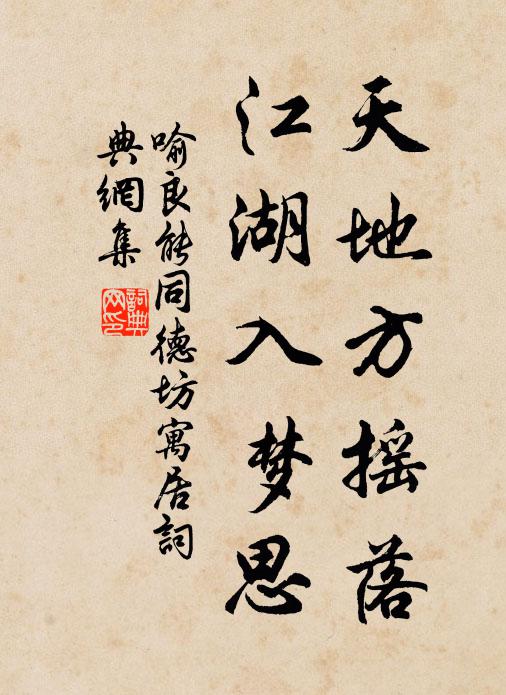 天地方摇落
江湖入梦思
喻良能同德坊寓居詞
典網集
詞典网印